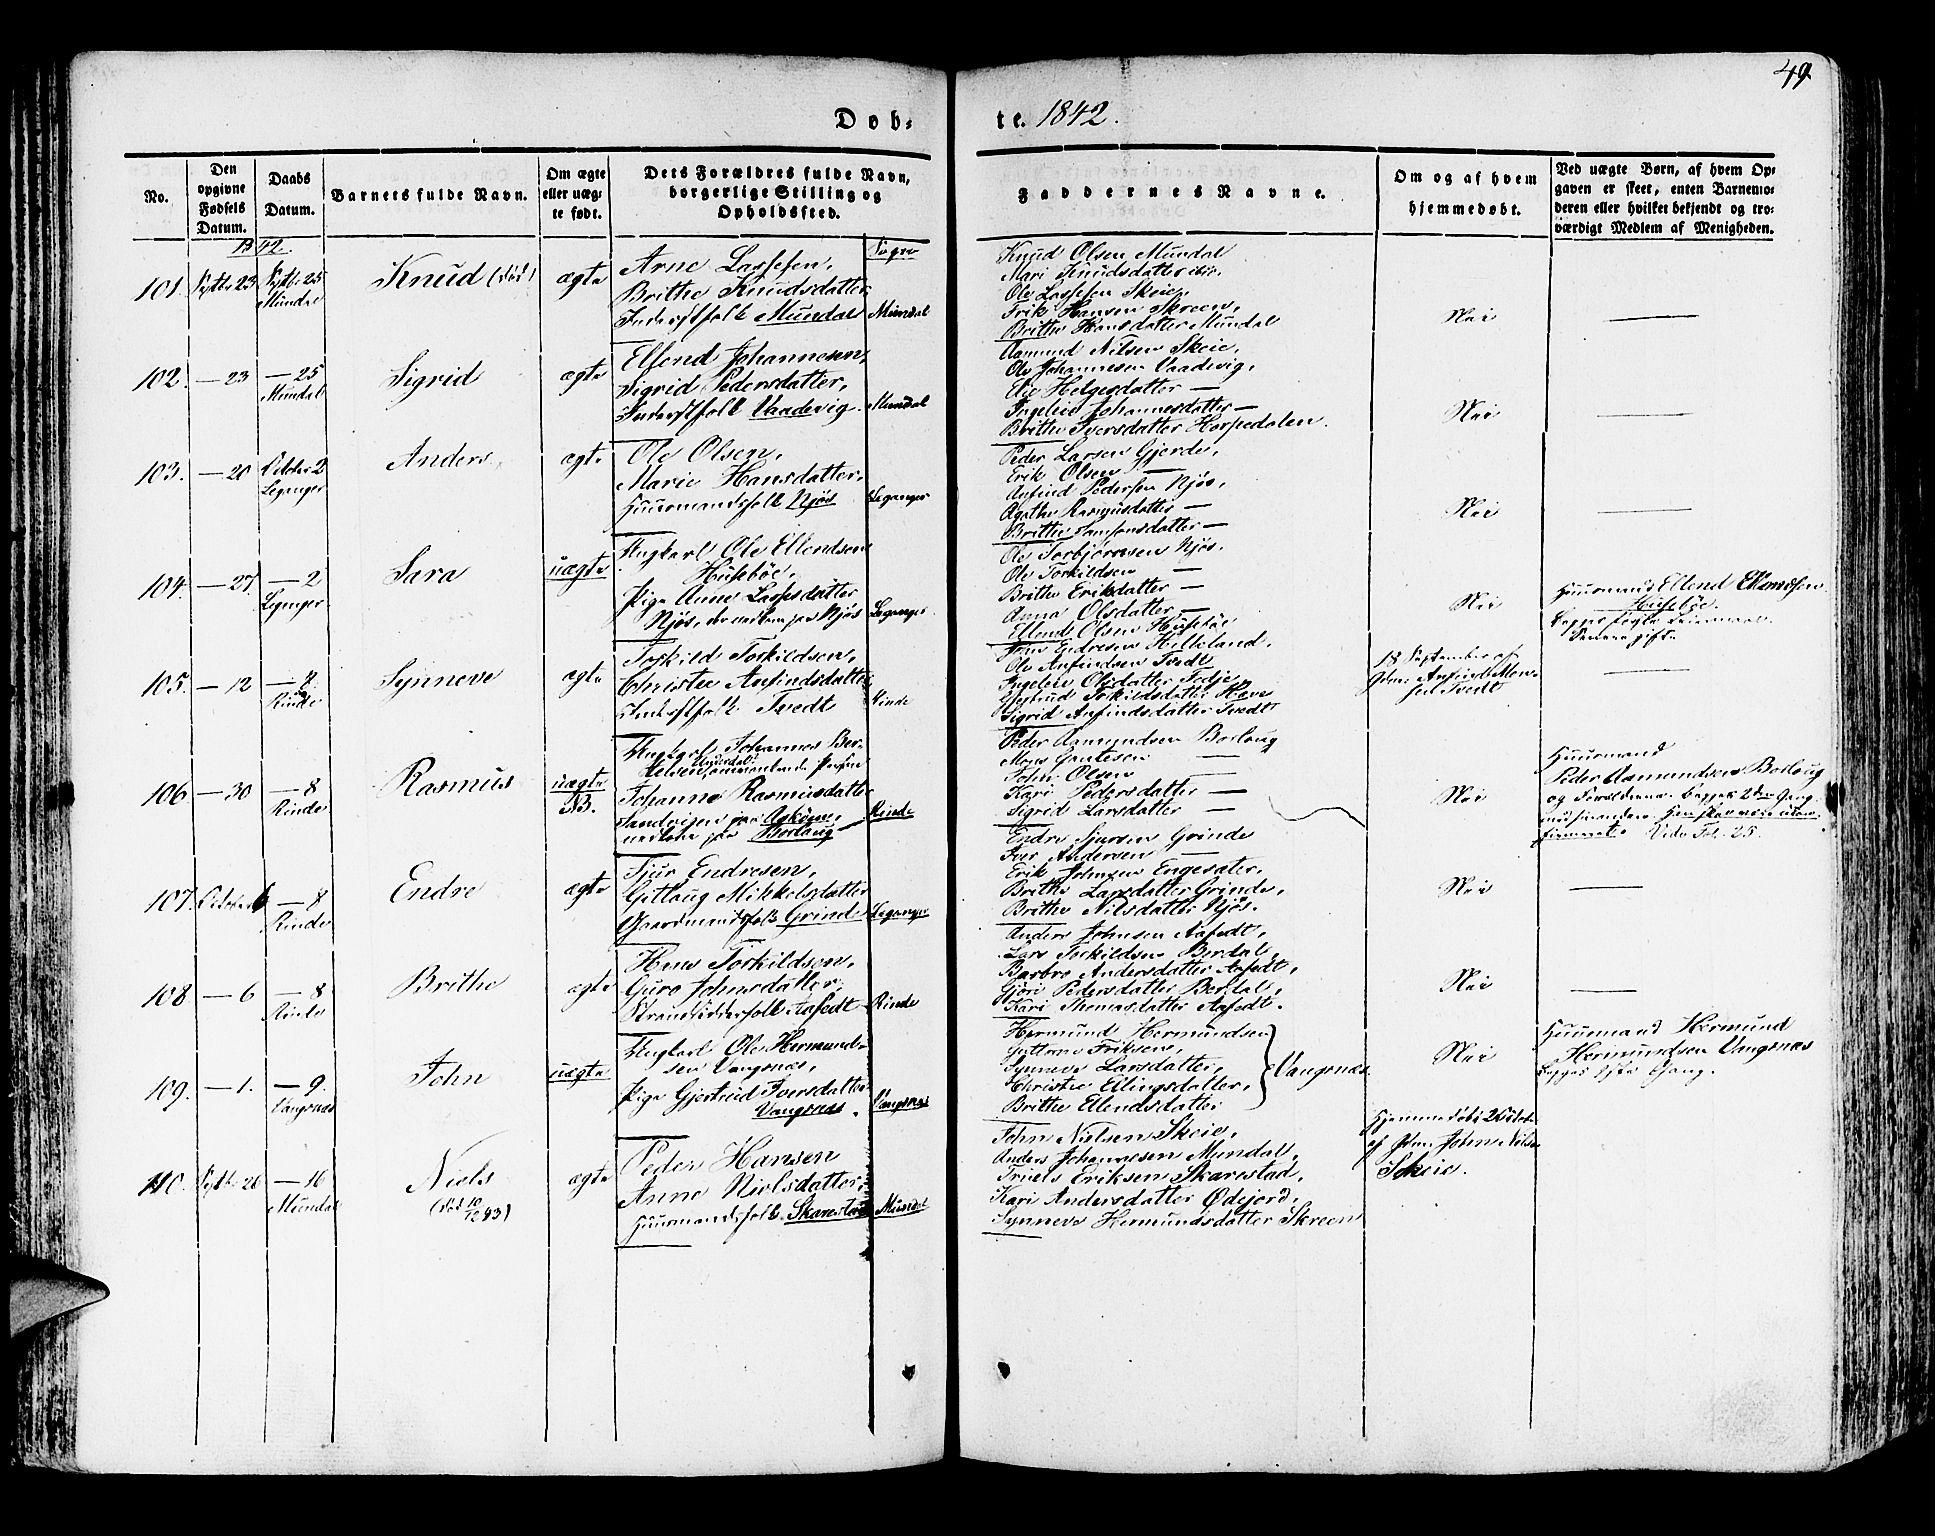 49
Døb-
te. 1842.
No.
Den opgivne Fødsels Datum.
Daabs Datum.
Barnets fulde Navn.
Om ægte eller uægte født.
Dets Forældres fulde Navn, borgerlige Stilling og Opholdssted.
Faddernes Navne.
Om og af hvem hjemmedøbt.
Ved uægte Børn, af hvem Opgaven er skeet, enten Barnemoderen eller hvilket bekjendt og troværdigt Medlem af Menigheden.
1842.
Sogne
101. Septbr 23 Septbr 25 Mundal
Knud (død)
ægte
Arne Lassesen,
Brithe Knudsdatter,
Inderstfolk Mundal
Mundal
Knud Olsen Mundal
Mari Knudsdatter ibid.
Ole Lassesen Skeie,
Erik Hansen Skreen,
Brithe Hansdatter Mundal
Nei
102. — 23 — 25 Mundal
Sigrid
ægte
Ellend Johannesen,
Sigrid Pedersdatter,
Inderstfolk Vaadevig.
Mundal
Aamund Nilsen Skeie,
Ole Johannesen Vaadevig,
Elie Helgesdatter —
Ingeleiv Johannesdatter —
Brithe Iversdatter Horpedalen.
Nei
103. — 20 October 2 Leganger
Anders
ægte
Ole Olsen,
Marie Hansdatter,
Huusmandsfolk Njøs
Leganger
Peder Larsen Gjerde,
Erik Olsen —
Anfind Pedersen Njøs,
Agathe Rasmusdatter —
Brithe Samsonsdatter —
Nei
104. — 27 — 2 Leganger
Sara
uægte
Ungkarl Ole Ellendsen
Husebøe,
Pige Anne Lassesdatter
Njøs,
Leganger
Ole Torbjørnsen Njøs.
Ole Torkildsen —
Brithe Eriksdatter —
Anna Olsdatter —
Ellend Olsen Husebøe
Nei
Huusmand Ellend
Husebøe.
105. — 12 — 8 Rinde
Synneve
ægte
Torkild Torkildsen,
Christie Anfindsdatter
Inderstfolk Tvedt
Rinde
Jon Endresen Hilleland,
Ole Anfindsen Tvedt
Ingeleiv Olsdatter
Gjertrud Torkildsdatter Hove
Sigrid Anfindsdatter Tvedt
18 September af
Gdm. Anfind Mon-
sen Tvedt
106 — 30 — 8 Rinde
Rasmus
uægte
NB.
Ungkarl Johannes Ber-
Johanne Rasmusdatter
Rinde
Peder Aamundsen Borlaug
Mons Gautesen —
John Olsen —
Kari Pedersdatter —
Sigrid Larsdatter —
Nei
Huusmand
Peder Aamundsen Borlaug
og Forældrene. Begges 2den Gang
Vide Fol. 25.
107. October 6 — 8 Rinde
Endre
ægte
Sjur Endresen,
Gitlaug Mikkelsdatter
Gaardmandsfolk Grinde
Leganger
Endre Sjursen Grinde
Iver Andersen —
Erik Johnsen Engesæter,
Brithe Larsdatter Grinde,
Brithe Nilsdatter Njøs.
Nei
108 — 6 — 8 Rinde
Brithe
ægte
Hans Torkildsen,
Guro Johnsdatter,
Strandsidderfolk Aafedt
Rinde
Anders Johnsen Aafedt,
Lars Torkildsen Berdal,
Barbro Andersdatter Aafedt,
Gjøri Pedersdatter Berdal,
Kari Thomasdatter Aafedt.
Nei
109. — 1. — 9. Vangsnæs
John
uægte
Ungkarl Ole Hermund-
sen Vangsnæs,
Pige Gjertrud Iversdatter
Vangsnæs.
Vangsnæs
Hermund Hermundsen
Guttorm Eriksen,
Synneve Larsdatter,
Christie Ellingsdatter,
Brithe Ellendsdatter
Vangsnæs.
Nei
Huusmand Hermund
Hermundsen Vangsnæs
Begges 1ste Gang.
110. Septbr 26 — 16 Mundal
Niels
(død 10/12 83)
ægte
Peder Hansen
Anne Nielsdatter,
Huusmandsfolk Skarestad
Mundal
John Nielsen Skeie,
Anders Johannesen Mundal,
Truels Eriksen Skarestad,
Kari Andersdatter Ødejord,
Synneve Hermundsdatter Skreen
Hjemmedøbt 2 Octob.
af Gdm. John Nilsen
Skeie.